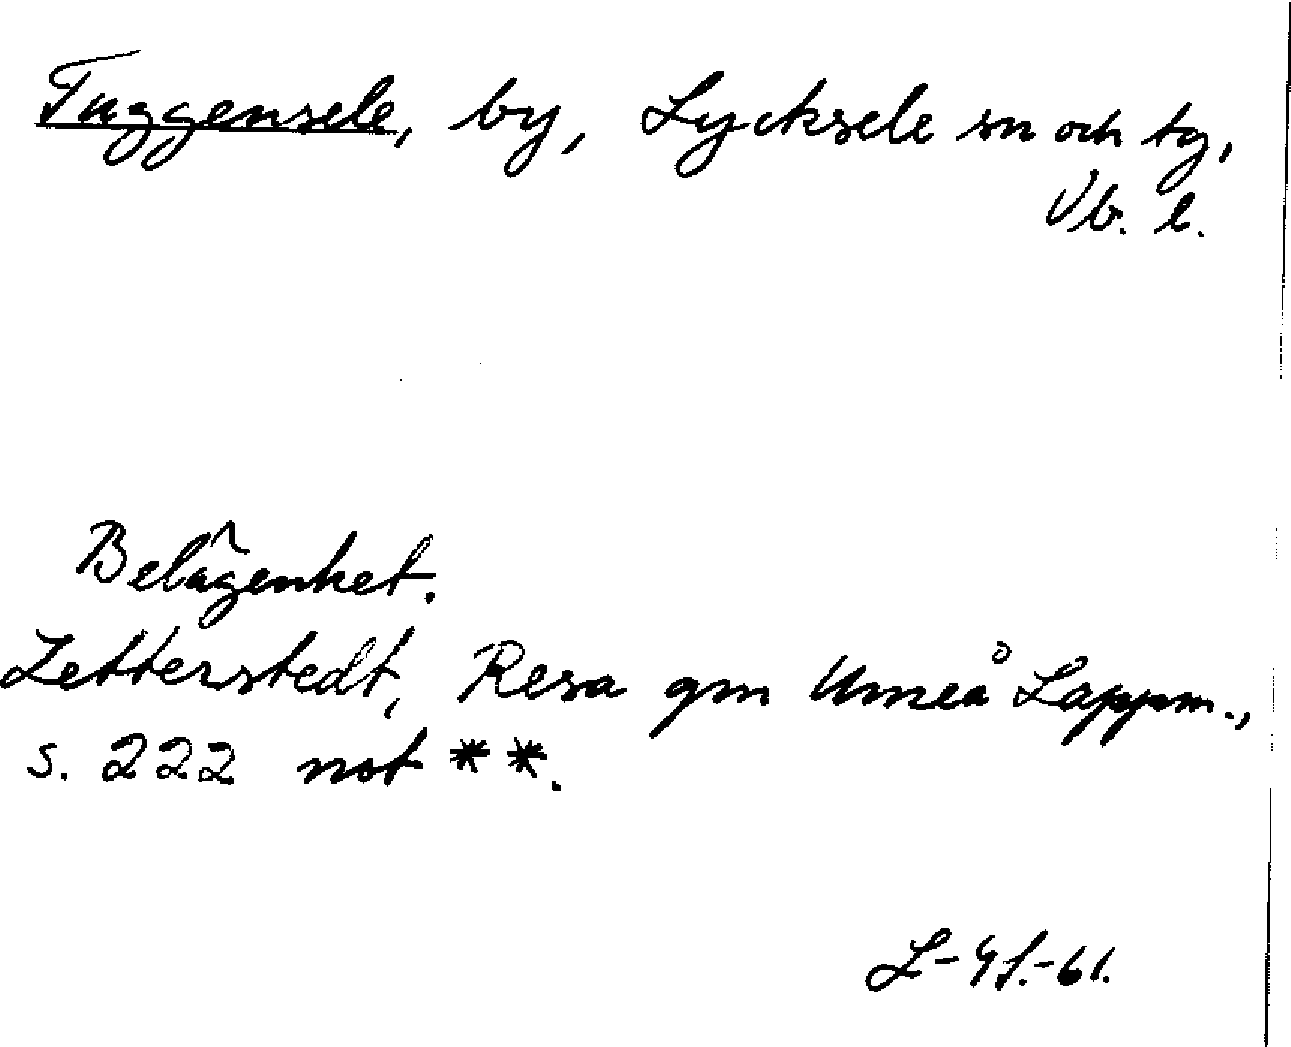 Tuggensele, by, Lycksele sn och tg,
Vb. l.
Belägenhet.
Zetterstedt, Resa gm Umeå Lappm.,
s. 222 not **.